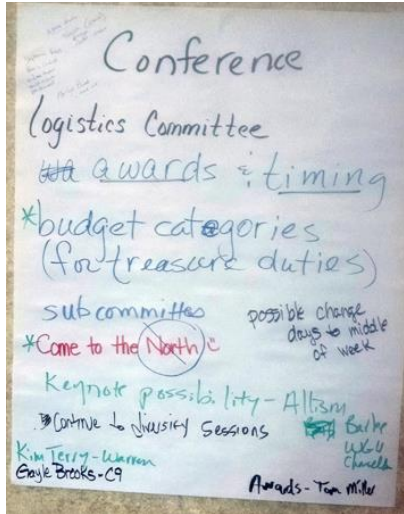 Conference
logistics Committee
awards & timing
*budget categories
(for treasure duties)
subcommittee
possible change
days to middle
of week
*Come to the North
Keynote possibility - Altism
Continue to diversify Sessions
Barke
WGU
Chancellor
Kim Terry-Warren
Gayle Brooks-C9
Awards - Tom Miller